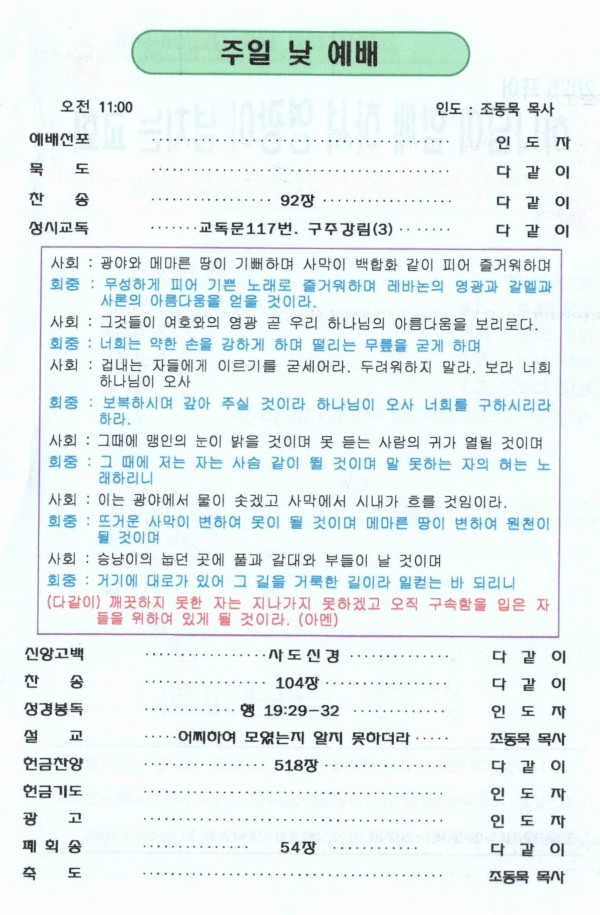 주일 낮 예배
오전 11:00 인도 : 조동묵 목사
예배선포 ································ 인 도 자
묵 도 ································ 다 같 이
찬 송 ··············· 92장 ··············· 다 같 이
성시교독 ·······교독문117번. 구주강림(3) ······· 다 같 이
사회 : 광야와 메마른 땅이 기뻐하며 사막이 백합화 같이 피어 즐거워하며
회중 : 무성하게 피어 기쁜 노래로 즐거워하며 레바논의 영광과 갈멜과
사론의 아름다움을 얻을 것이라.
사회 : 그것들이 여호와의 영광 곧 우리 하나님의 아름다움을 보리로다.
회중 : 너희는 약한 손을 강하게 하며 떨리는 무릎을 굳게 하며
사회 : 겁내는 자들에게 이르기를 굳세어라. 두려워하지 말라. 보라 너희
하나님이 오사
회중 : 보복하시며 갚아 주실 것이라 하나님이 오사 너희를 구하시리라
하라.
사회 : 그때에 맹인의 눈이 밝을 것이며 못 듣는 사람의 귀가 열릴 것이며
회중 : 그 때에 저는 자는 사슴 같이 뛸 것이며 말 못하는 자의 혀는 노
래하리니
사회 : 이는 광야에서 물이 솟겠고 사막에서 시내가 흐를 것임이라.
회중 : 뜨거운 사막이 변하여 못이 될 것이며 메마른 땅이 변하여 원천이
될 것이며
사회 : 승냥이의 눕던 곳에 풀과 갈대와 부들이 날 것이며
회중 : 거기에 대로가 있어 그 길을 거룩한 길이라 일컫는 바 되리니
(다같이) 깨끗하지 못한 자는 지나가지 못하겠고 오직 구속함을 입은 자
들을 위하여 있게 될 것이라. (아멘)
신앙고백 ················사도신경 ·············· 다 같 이
찬 송 ················ 104장················ 다 같 이
성경봉독 ············ 행 19:29-32 ············ 인 도 자
설 교 ·····어찌하여 모였는지 알지 못하더라 ····· 조동묵 목사
헌금찬양 ··············· 518장 ··············· 다 같 이
헌금기도 ································ 인 도 자
광 고 ································ 인 도 자
폐 회 송 ··············· 54장 ············ 다 같 이
축 도 ································ 조동묵 목사